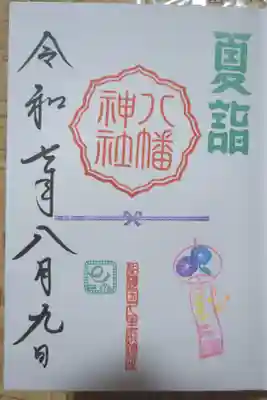 夏詣
八幡
神社
令和七年八月九日